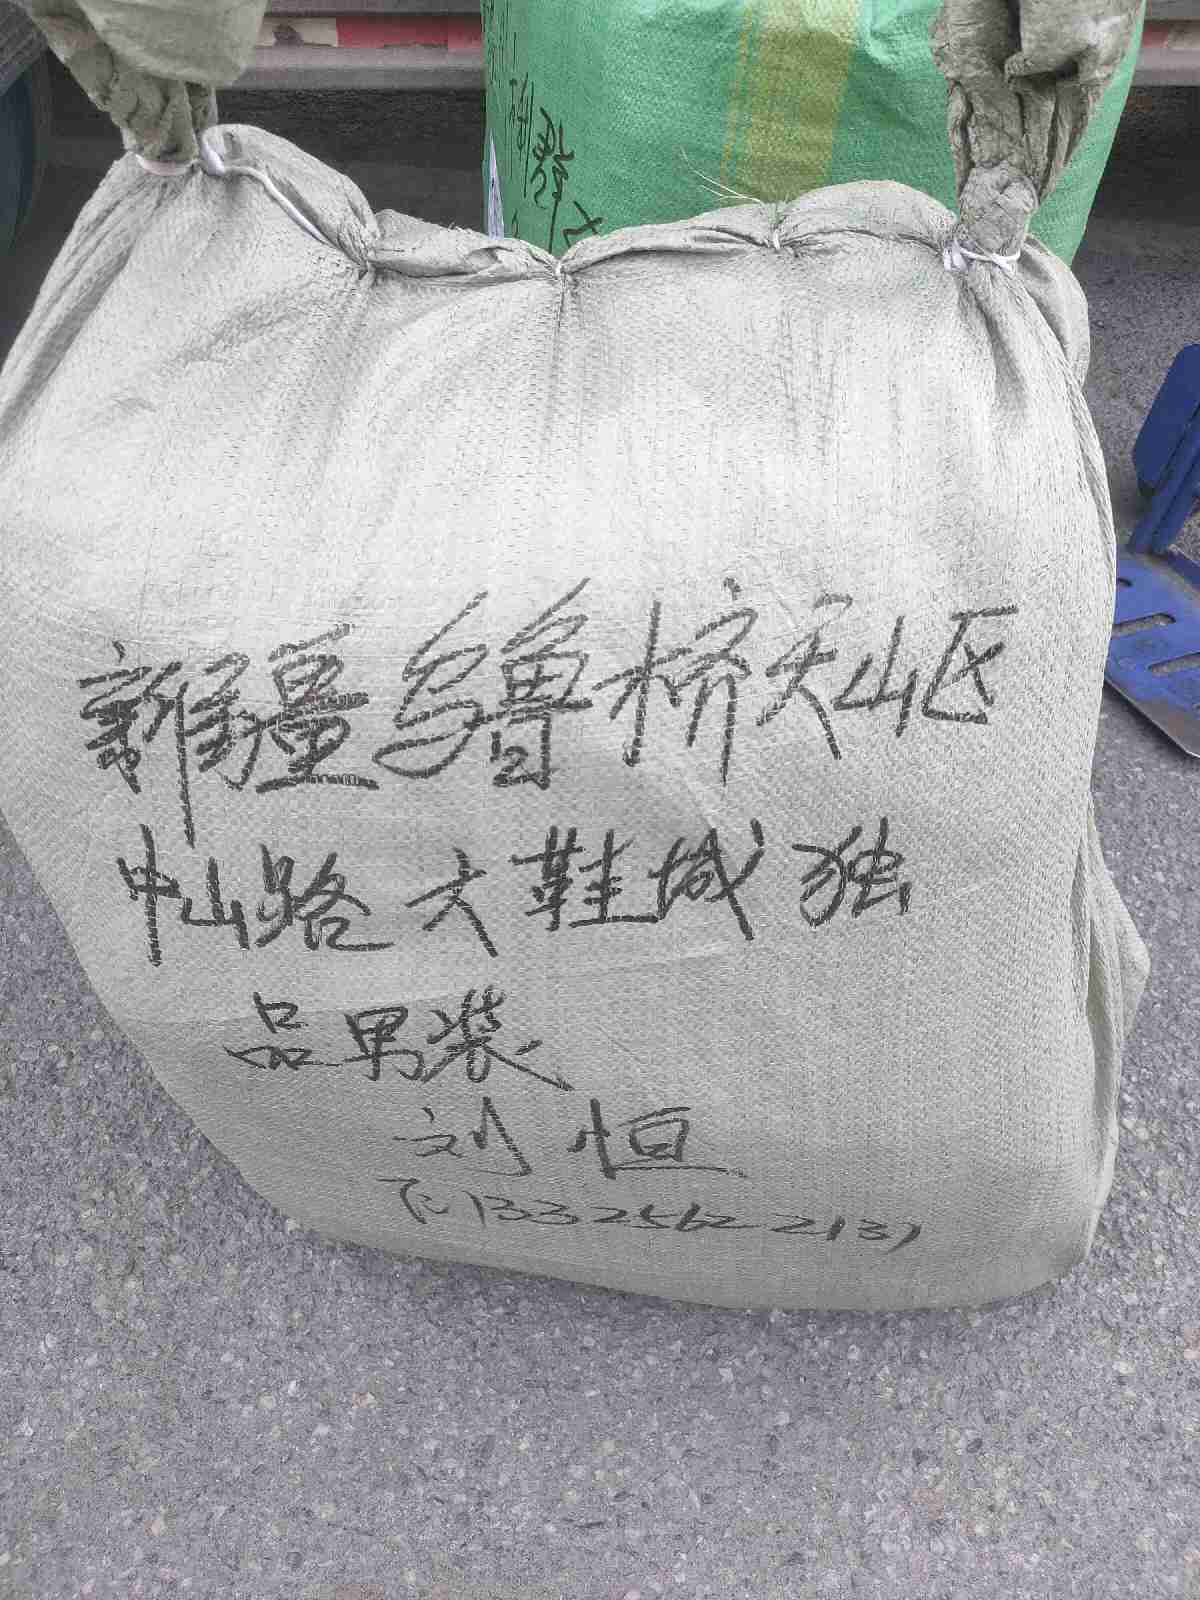 新疆乌鲁桥天山区
中山路大鞋城独
品男装
刘恒
飞13325622131